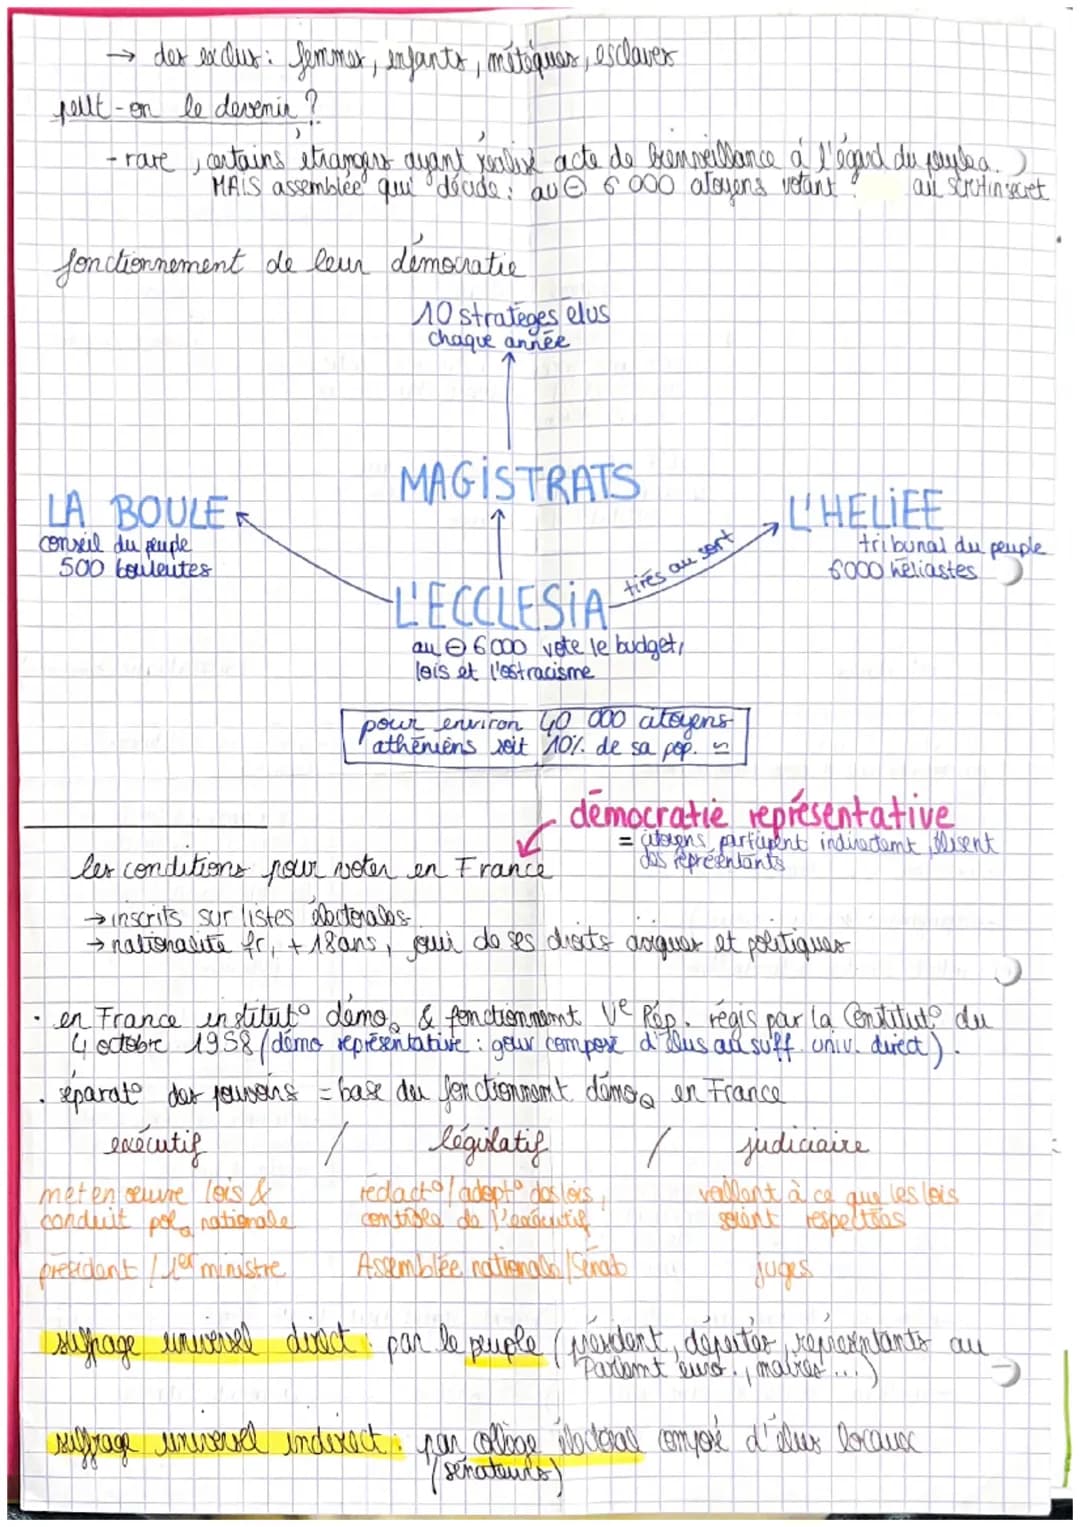 → des exclus : femmes, enfants, métèques, esclaves
peut-on le devenir ?
- rare, certains étrangers ayant réalisé acte de bienveillance à l'égard du peuple
MAIS assemblée qui décide : au ⊖ 6 000 citoyens votant au scrutin secret
fonctionnement de leur démocratie
10 stratèges élus
chaque année
MAGISTRATS
LA BOULE
conseil du peuple
500 bouleutes
L'HELIEE
tribunal du peuple
6000 héliastes
tirés au sort
L'ECCLESIA
au ⊖ 6000 vote le budget,
lois et l'ostracisme
pour environ 40 000 citoyens
athéniens soit 10% de sa pop.
démocratie représentative
= citoyens participent indirectemt, élisent
des représentants
les conditions pour voter en France
→ inscrits sur listes électorales
→ nationalité fr, + 18ans, joui de ses droits civiques et politiques
. en France institut° démo. & fonctionnemt Ve Rép. régis par la Constitut° du
4 octobre 1958 (démo représentative : gouv composé d'élus au suff. univ. direct).
. séparat° des pouvoirs = base du fonctionnemt démoq en France
exécutif / législatif / judiciaire
met en œuvre lois &
conduit polq nationale
rédact°/adopt° des lois,
contrôle de l'exécutif
veillent à ce que les lois
soient respectées
président / 1er ministre
Assemblée nationale/Sénat
juges
suffrage universel direct : par le peuple (président, députés, représentants au
Parlemt euro., maires ...)
suffrage universel indirect : par collège électoral composé d'élus locaux
(sénateurs)